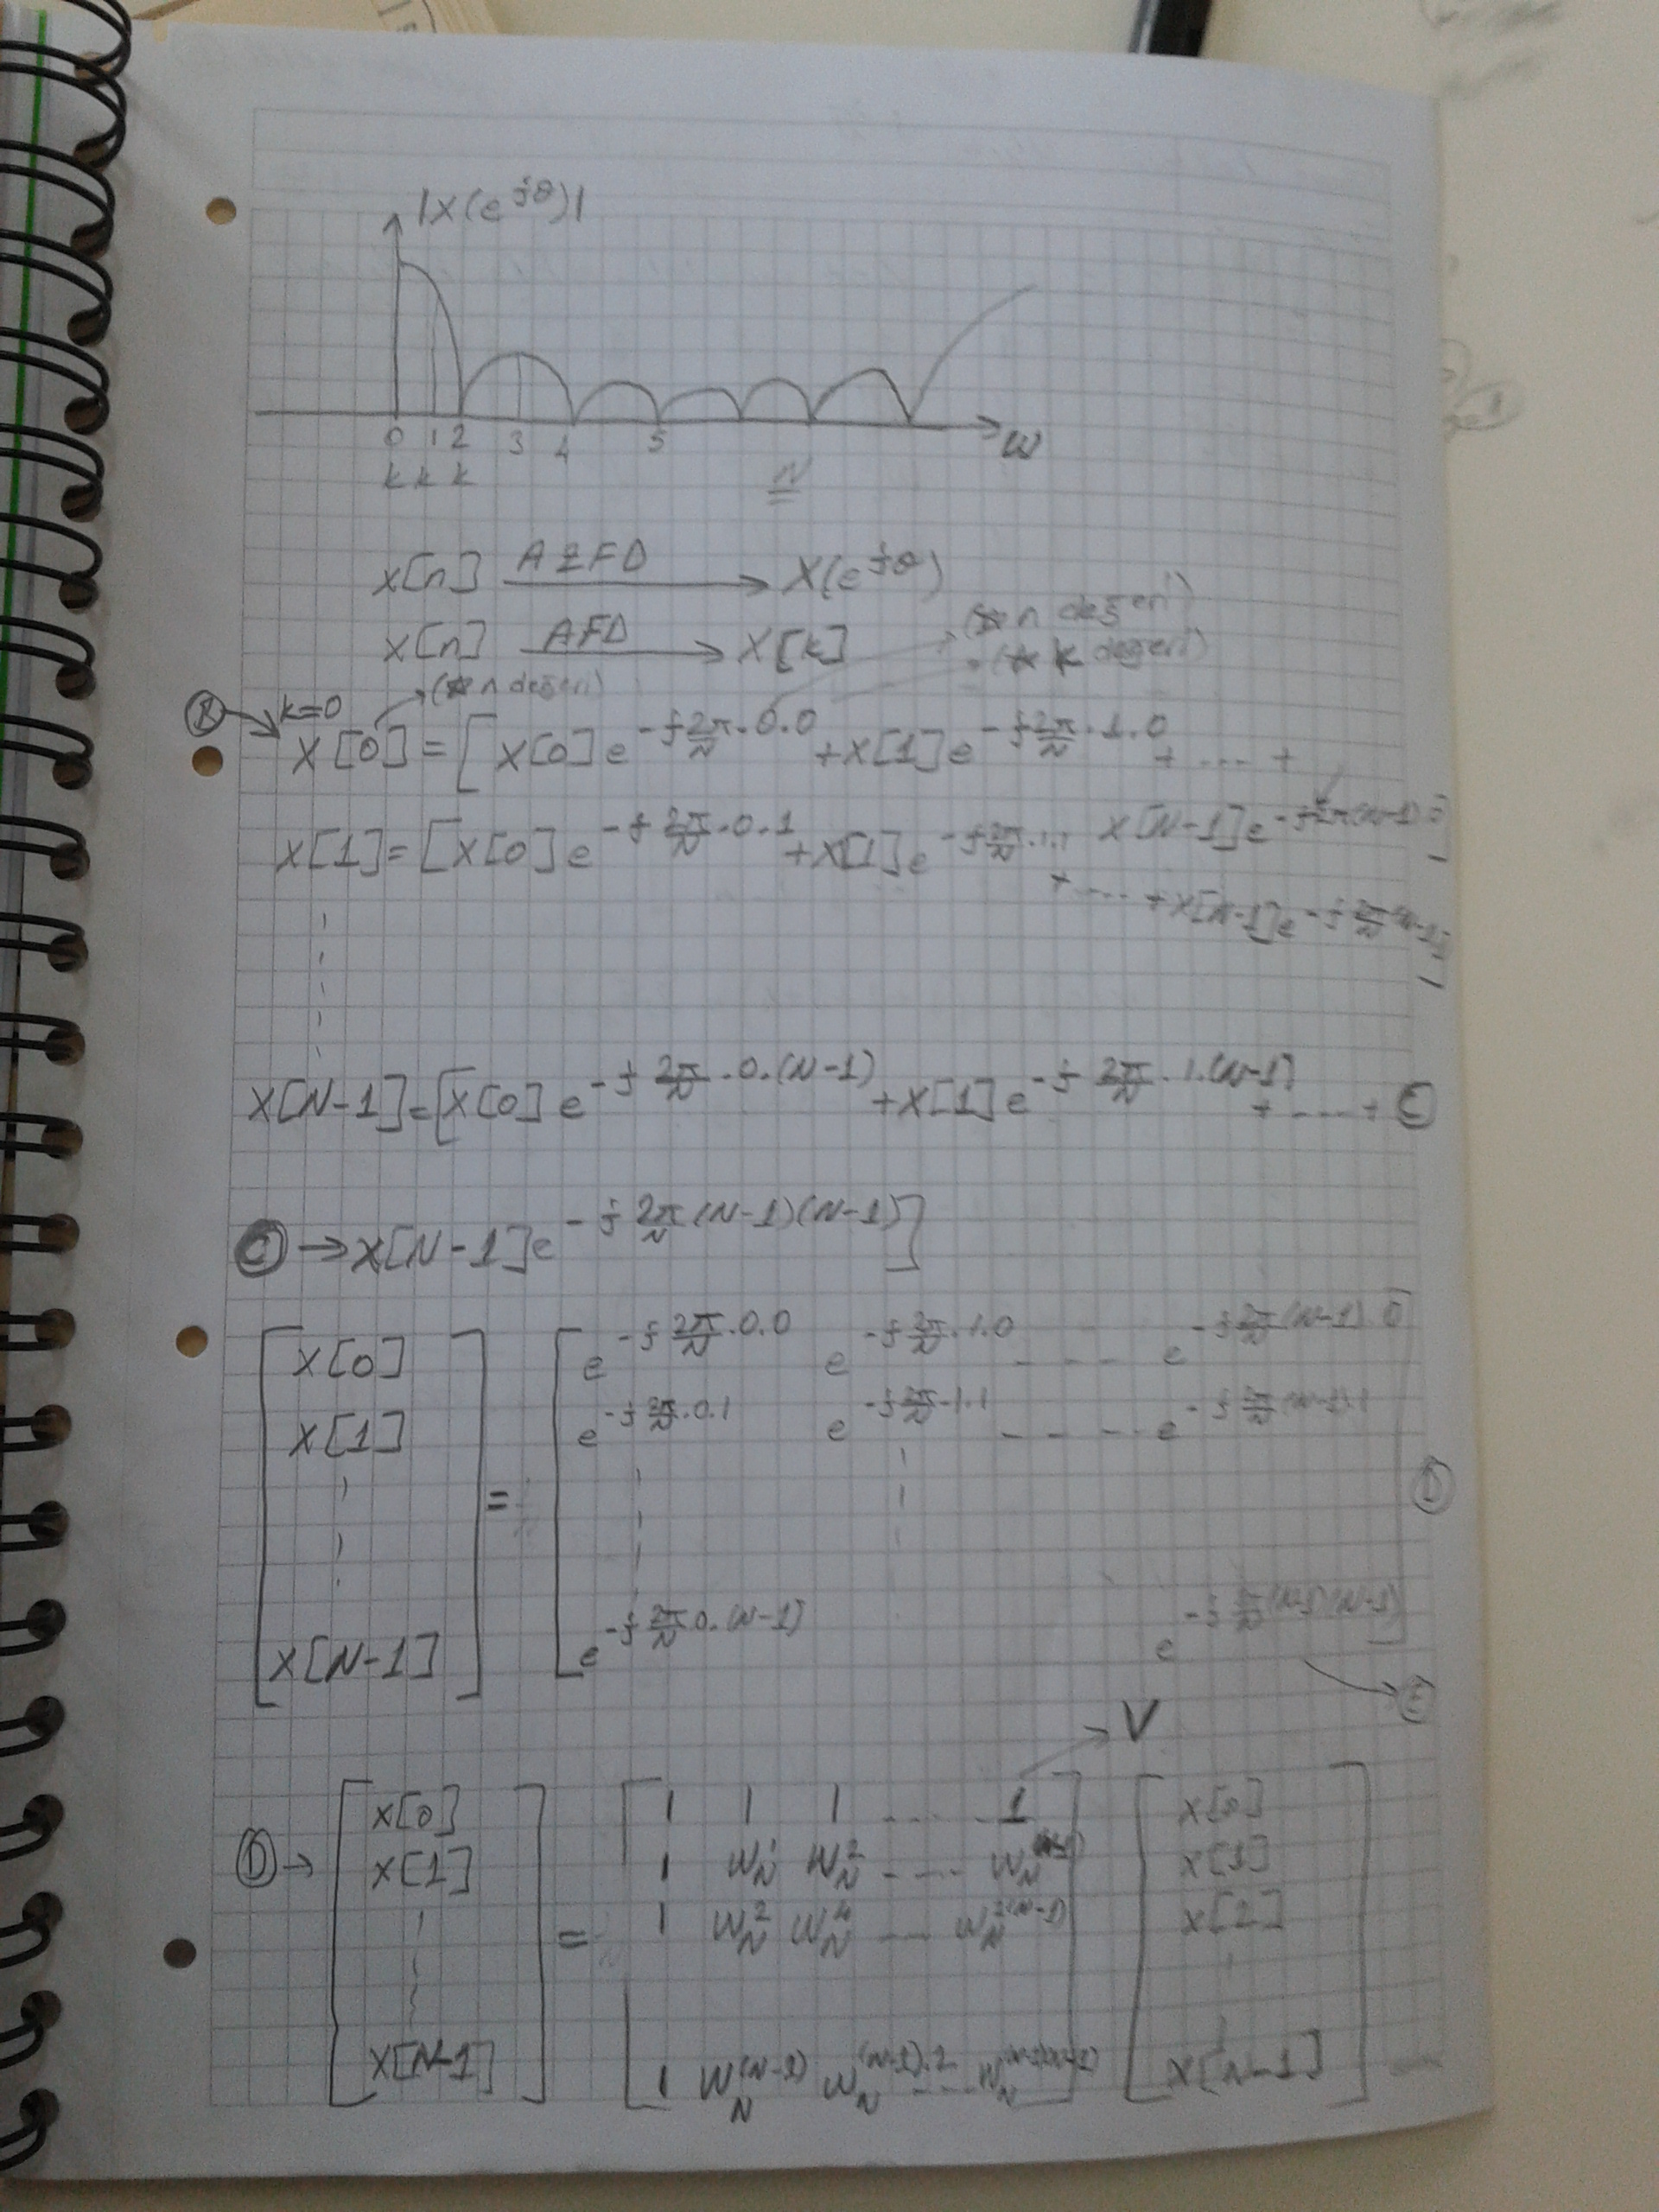 |X(e^{jθ})|
0 1 2 3 4 5 ω
k k k N
x[n] AZFD → X(e^{jθ})
x[n] AFD → X[k]
(n değeri)
(k değeri)
(n değeri)
k=0
X[0] = [x[0]e^{-j2π/N·0·0} + x[1]e^{-j2π/N·1·0} + .... +
x[N-1]e^{-j2π(N-1)·0}
X[1] = [x[0]e^{-j2π/N·0·1} + x[1]e^{-j2π/N·1·1}
+ .... + x[N-1]e^{-j2π/N(N-1)·1}]
X[N-1] = [x[0]e^{-j2π/N·0·(N-1)} + x[1]e^{-j2π/N·1·(N-1)} + ..... + C
C → x[N-1]e^{-j2π/N(N-1)(N-1)}]
X[0] e^{-j2π/N·0·0} e^{-j2π/N·1·0} ---- e^{-j2π/N(N-1)·0}
X[1] e^{-j2π/N·0·1} e^{-j2π/N·1·1} ---- e^{-j2π/N(N-1)·1}
= D
X[N-1] e^{-j2π/N·0·(N-1)} e^{-j2π/N(N-1)(N-1)}
V
X[0] 1 1 1 .... 1 x[0]
D → X[1] 1 W_N^1 W_N^2 .... W_N^{(N-1)} x[1]
1 W_N^2 W_N^4 .... W_N^{2(N-1)} x[2]
=
X[N-1] 1 W_N^{(N-1)} W_N^{(N-1)·2} .... W_N^{(N-1)(N-1)} x[N-1]